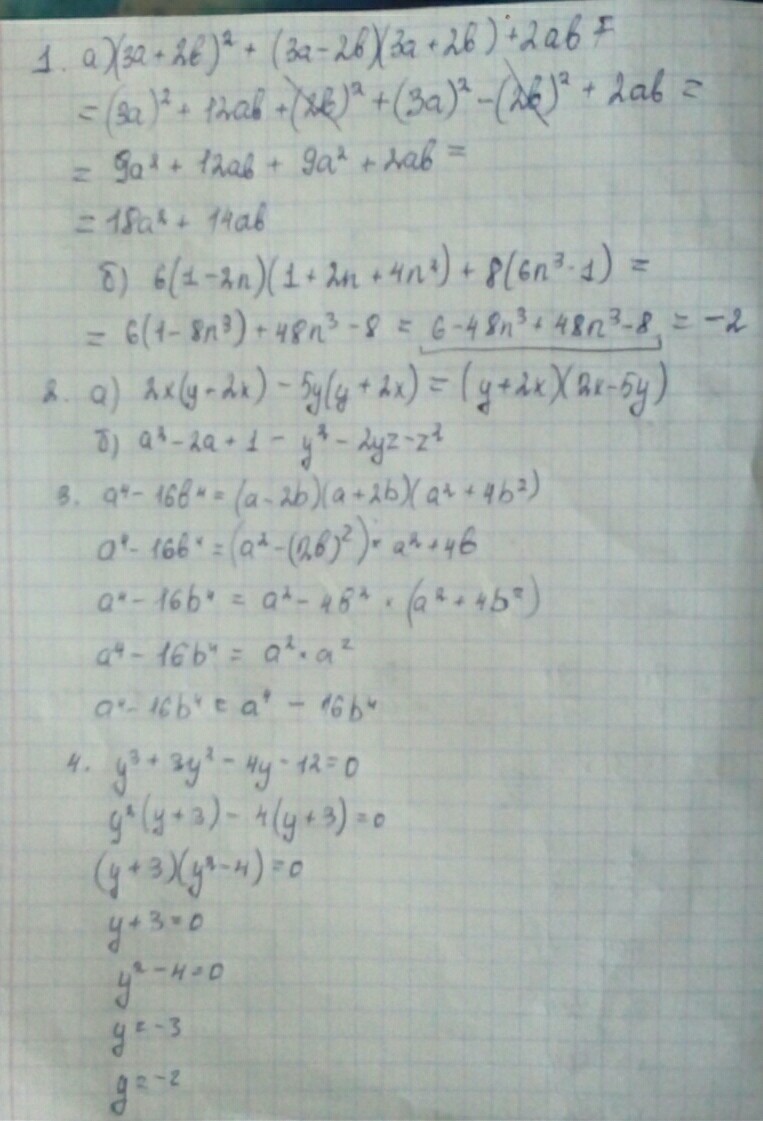 1. а) (3a + 2b)² + (3a - 2b)(3a + 2b) + 2ab =
= (3a)² + 12ab + (2b)² + (3a)² - (2b)² + 2ab =
= 9a² + 12ab + 9a² + 2ab =
= 18a² + 14ab
б) 6(1 - 2n)(1 + 2n + 4n²) + 8(6n³ - 1) =
= 6(1 - 8n³) + 48n³ - 8 = 6 - 48n³ + 48n³ - 8 = -2
2. а) 2x(y - 2x) - 5y(y + 2x) = (y + 2x)(2x - 5y)
б) a² - 2a + 1 - y² - 2yz - z²
3. a⁴ - 16b⁴ = (a - 2b)(a + 2b)(a² + 4b²)
a⁴ - 16b⁴ = (a² - (2b)²) · a² + 4b
a⁴ - 16b⁴ = a² - 4b² · (a² + 4b²)
a⁴ - 16b⁴ = a² · a²
a⁴ - 16b⁴ = a⁴ - 16b⁴
4. y³ + 3y² - 4y - 12 = 0
y²(y + 3) - 4(y + 3) = 0
(y + 3)(y² - 4) = 0
y + 3 = 0
y² - 4 = 0
y = -3
y = -2